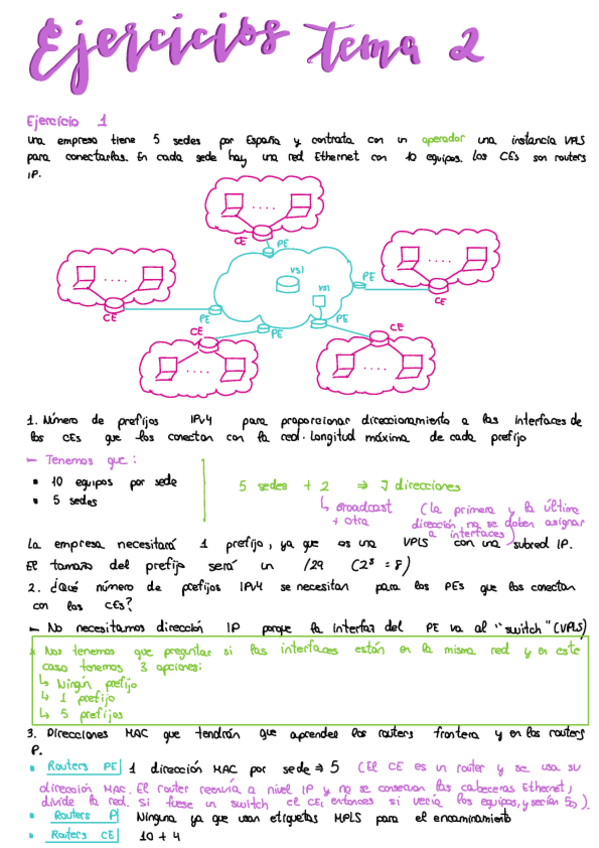 Ejercicios tema 2
Ejercicio 1
Una empresa tiene 5 sedes por España y contrata con un operador una instancia VPLS
para conectarlas. En cada sede hay una red Ethernet con 10 equipos. Los CEs son routers
IP.
CE
PE
VSI
VSI
CE
PE
PE
CE
CE
PE
PE
CE
1. Número de prefijos IPv4 para proporcionar direccionamiento a las interfaces de
los CEs que los conectan con la red. Longitud máxima de cada prefijo
– Tenemos que:
• 10 equipos por sede
• 5 sedes
5 sedes + 2 ⇒ 7 direcciones
↳ Broadcast
+ otra
(la primera y la última
dirección, no se deben asignar
a interfaces)
La empresa necesitará 1 prefijo, ya que es una VPLS con una subred IP.
El tamaño del prefijo será un /29 (2³ = 8)
2. ¿Qué número de prefijos IPV4 se necesitan para los PEs que los conectan
con los CEs?
– No necesitamos dirección IP porque la interfaz del PE va al "switch" (VPLS)
* Nos tenemos que preguntar si las interfaces están en la misma red y en este
caso tenemos 3 opciones:
↳ Ningún prefijo
↳ 1 prefijo
↳ 5 prefijos
3. Direcciones MAC que tendrán que aprender los routers frontera y en los routers
P.
• Routers PE 1 dirección MAC por sede ⇒ 5 (El CE es un router y se usa su
dirección MAC. El router reenvía a nivel IP y no se conservan las cabeceras Ethernet,
divide la red. Si fuese un switch el CE, entonces si vería los equipos, y serían 50).
• Routers P Ninguna ya que usan etiquetas MPLS para el encaminamiento
• Routers CE 10 + 4